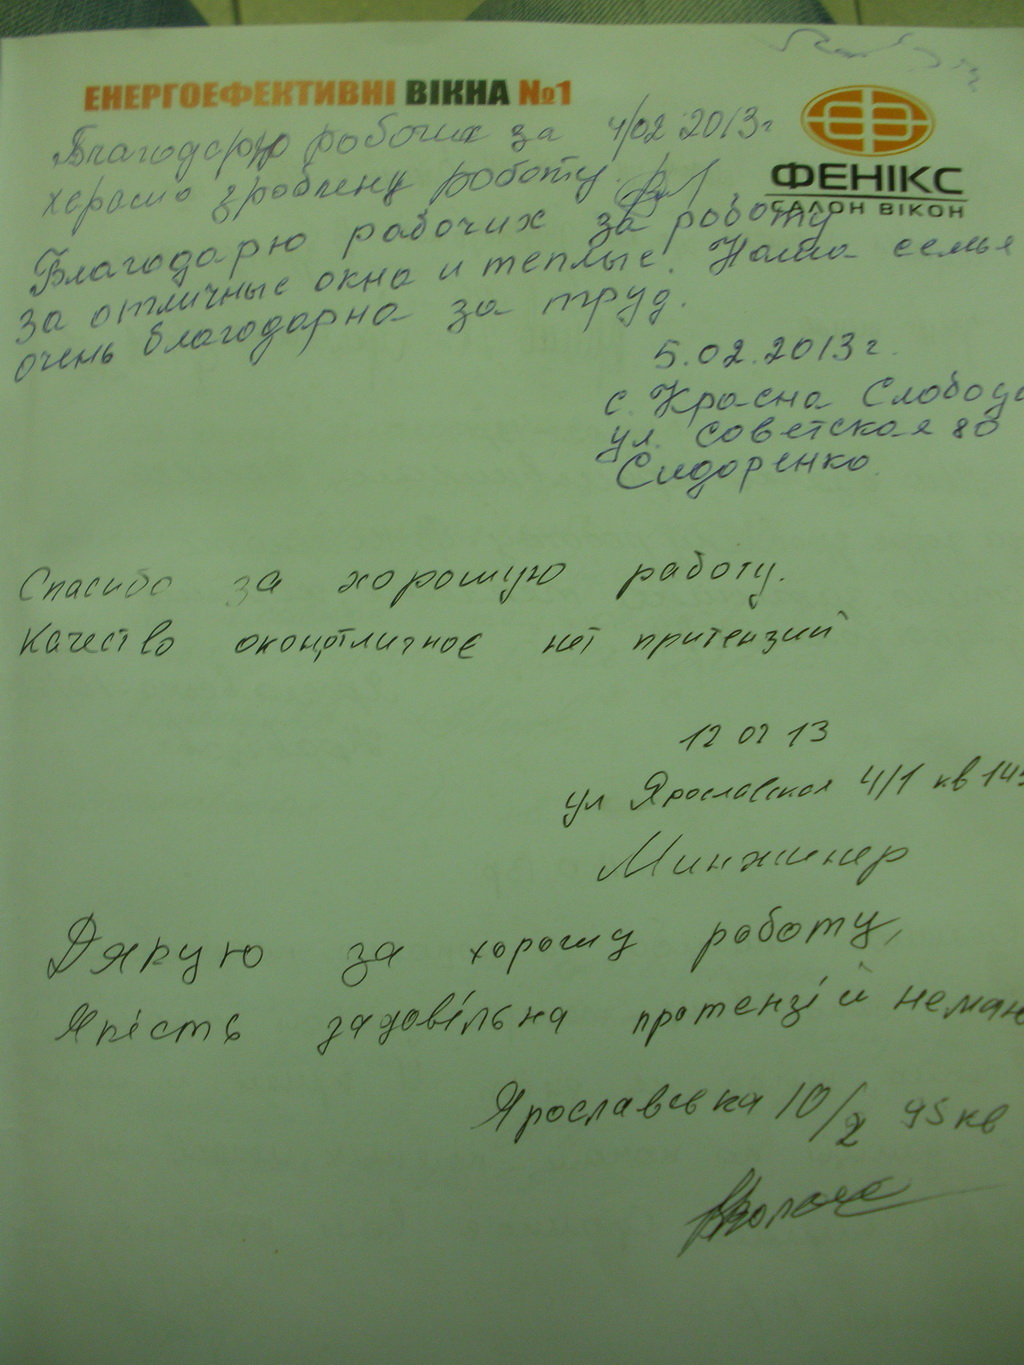 ЕНЕРГОЕФЕКТИВНІ ВІКНА №1
ФЕНІКС
САЛОН ВІКОН
Благодарю робочих за 4/02 2013г
харашо зроблену роботу.
Благодарю рабочих за роботу
за отличные окна и теплые. Наша семья
очень благодарна за труд.
5.02.2013г.
с. Красна Слобода
ул. Советская 80
Сидоренко.
Спасибо за хорошую работу.
Качество окон отличноє нет притензий
12 02 13
ул Ярославская 4/1 кв 145
Минжинер
Дякую за хорошу роботу,
Якість задовільна протензій немаю
Ярославська 10/2 95 кв